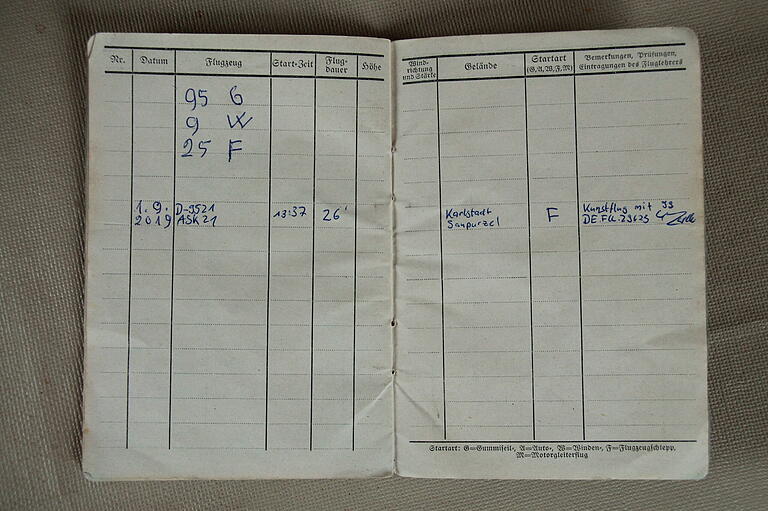 Nr. Datum Flugzeug Start-Zeit Flug-
dauer Höhe
95 G
9 W
25 F
1.9.
2019 D-9521
ASK21 13:37 26'
Wind-
richtung
und Stärke Gelände Startart
(G, A, W, F, M) Bemerkungen, Prüfungen,
Eintragungen des Fluglehrers
Karlstadt
Saupurzel F Kunstflug mit
DE.FCL.23625
Startart: G=Gummiseil-, A=Auto-, W=Winden-, F=Flugzeugschlepp,
M=Motorgleiterflug